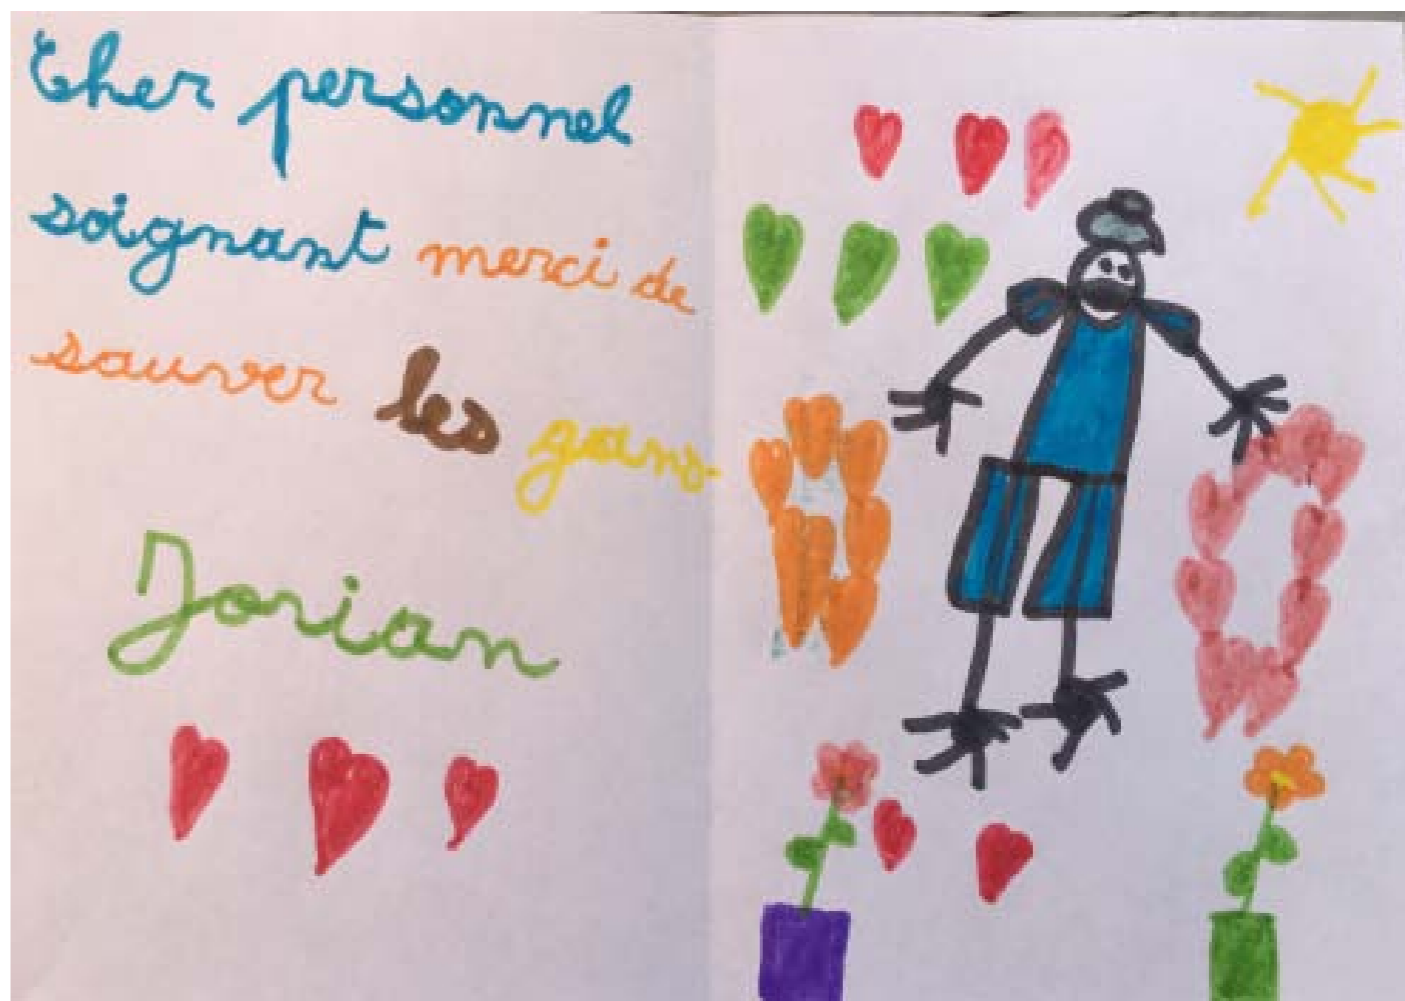 Cher personnel
soignant merci de
sauver les gans.
Jorian